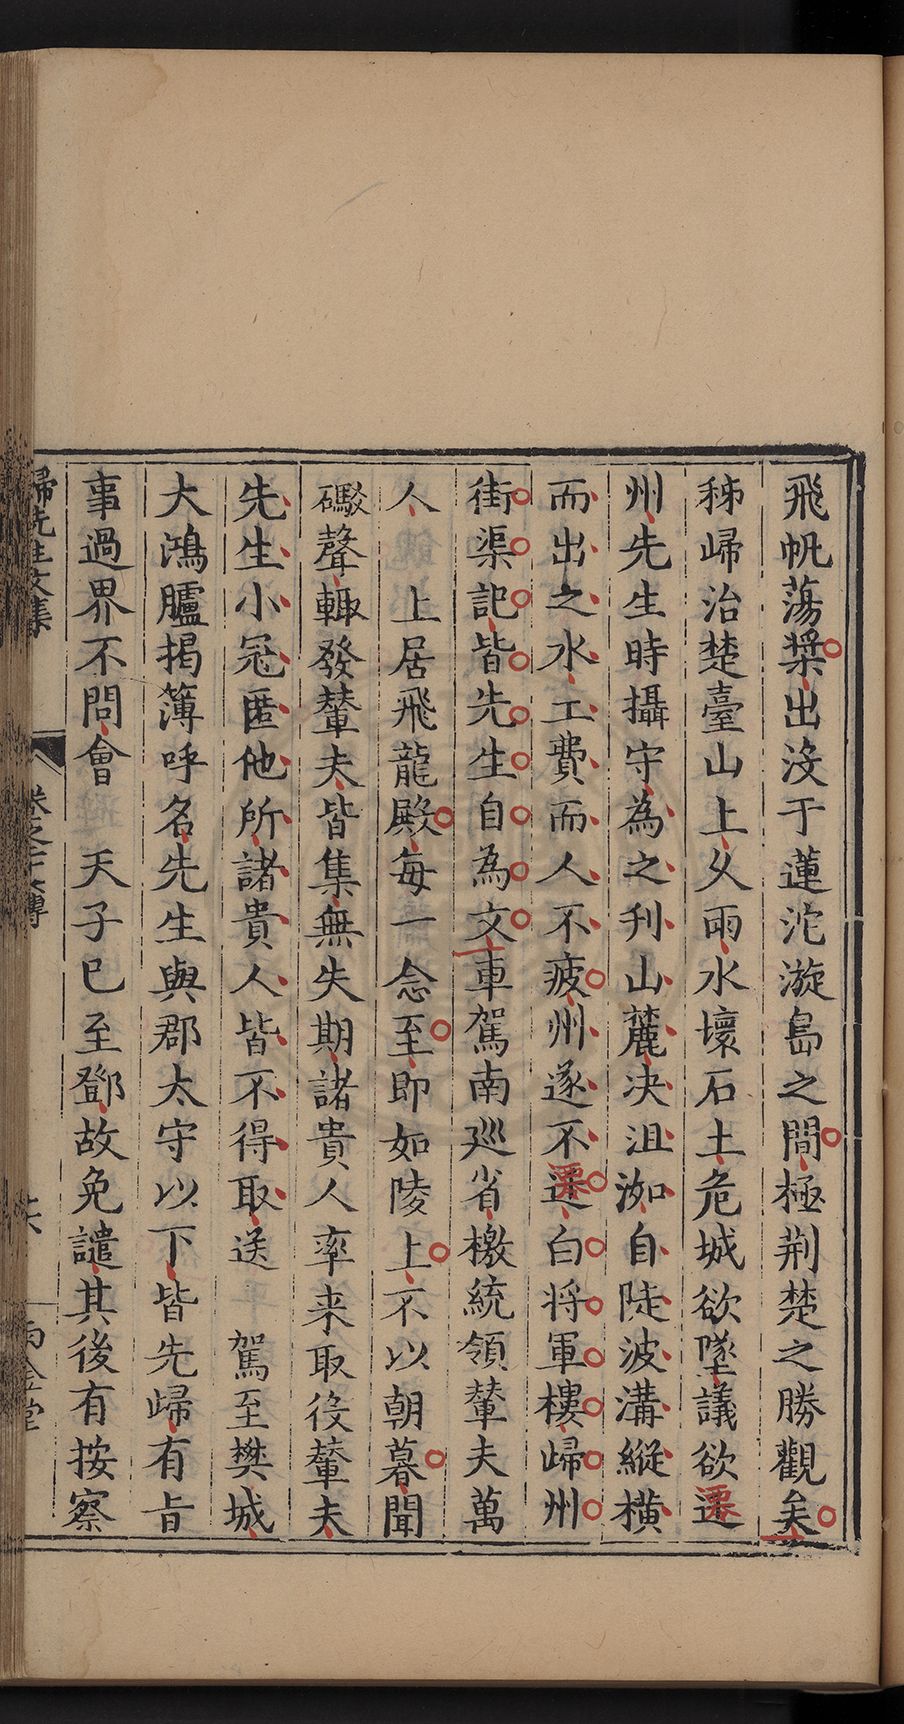 飛帆蕩槳出沒于蓮沱漩島之間極荆楚之勝觀矣
秭歸治楚臺山上乆雨水壞石土危城欲墜議欲遷
州先生時攝守為之刋山麓决沮洳自陡波溝縱橫
而出之水工費而人不疲州遂不遷白将軍樓歸州
街渠記皆先生自為文車駕南廵省檄統領輦夫萬
人　上居飛龍殿每一念至即如陵上不以朝暮聞
礟聲輙發輦夫皆集無失期諸貴人率来取役輦夫
先生小冠匿他所諸貴人皆不得取送　駕至樊城
大鴻臚揭簿呼名先生與郡太守以下皆先歸有旨
事過界不問會　天子已至鄧故免譴其後有按察
歸先生文集
卷之二十